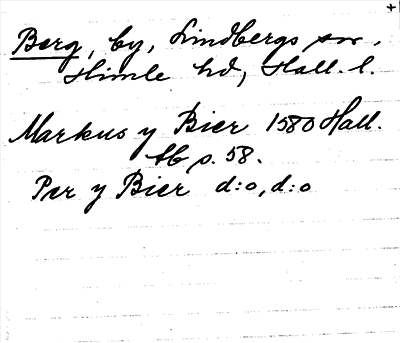 Berg, by, Lindbergs sn,
Himle hd, Hall. l.
Markus y Bier 1580 Hall.
tb s. 58.
Per y Bier d:o, d:o